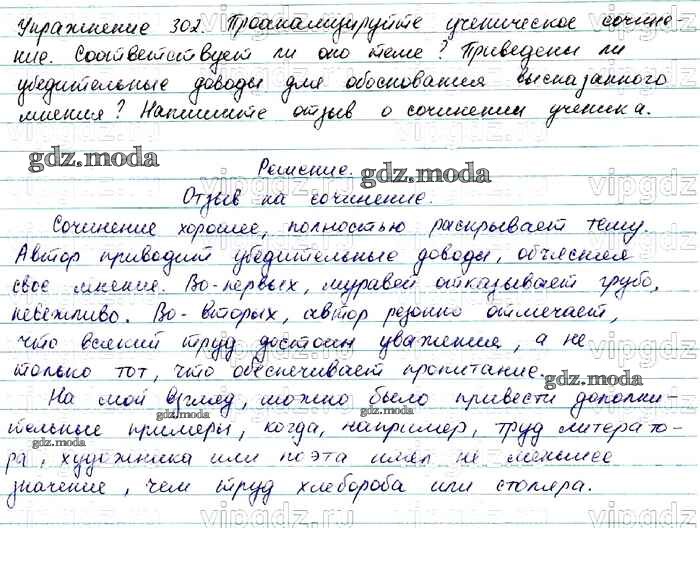 Упражнение 302. Проанализируйте ученическое сочине-
ние. Соответствует ли оно теме? Приведены ли
убедительные доводы для обоснования высказанного
мнения? Напишите отзыв о сочинении ученика.
gdz.moda
Решение.
gdz.moda
vipgdz
Отзыв на сочинение.
Сочинение хорошее, полностью раскрывает тему.
Автор приводит убедительные доводы, объясняя
свое мнение. Во-первых, муравей отказывает грубо,
невежливо. Во-вторых, автор резонно отмечает,
что всякий труд достоин уважения, а не
только тот, что обеспечивает пропитание.
gdz.moda
На мой взгляд, можно было привести дополни-
gdz.moda
тельные примеры, когда, например, труд литерато-
gdz.moda
ра, художника или поэта имел не меньшее
значение, чем труд хлебороба или столяра.
vipgdz.ru